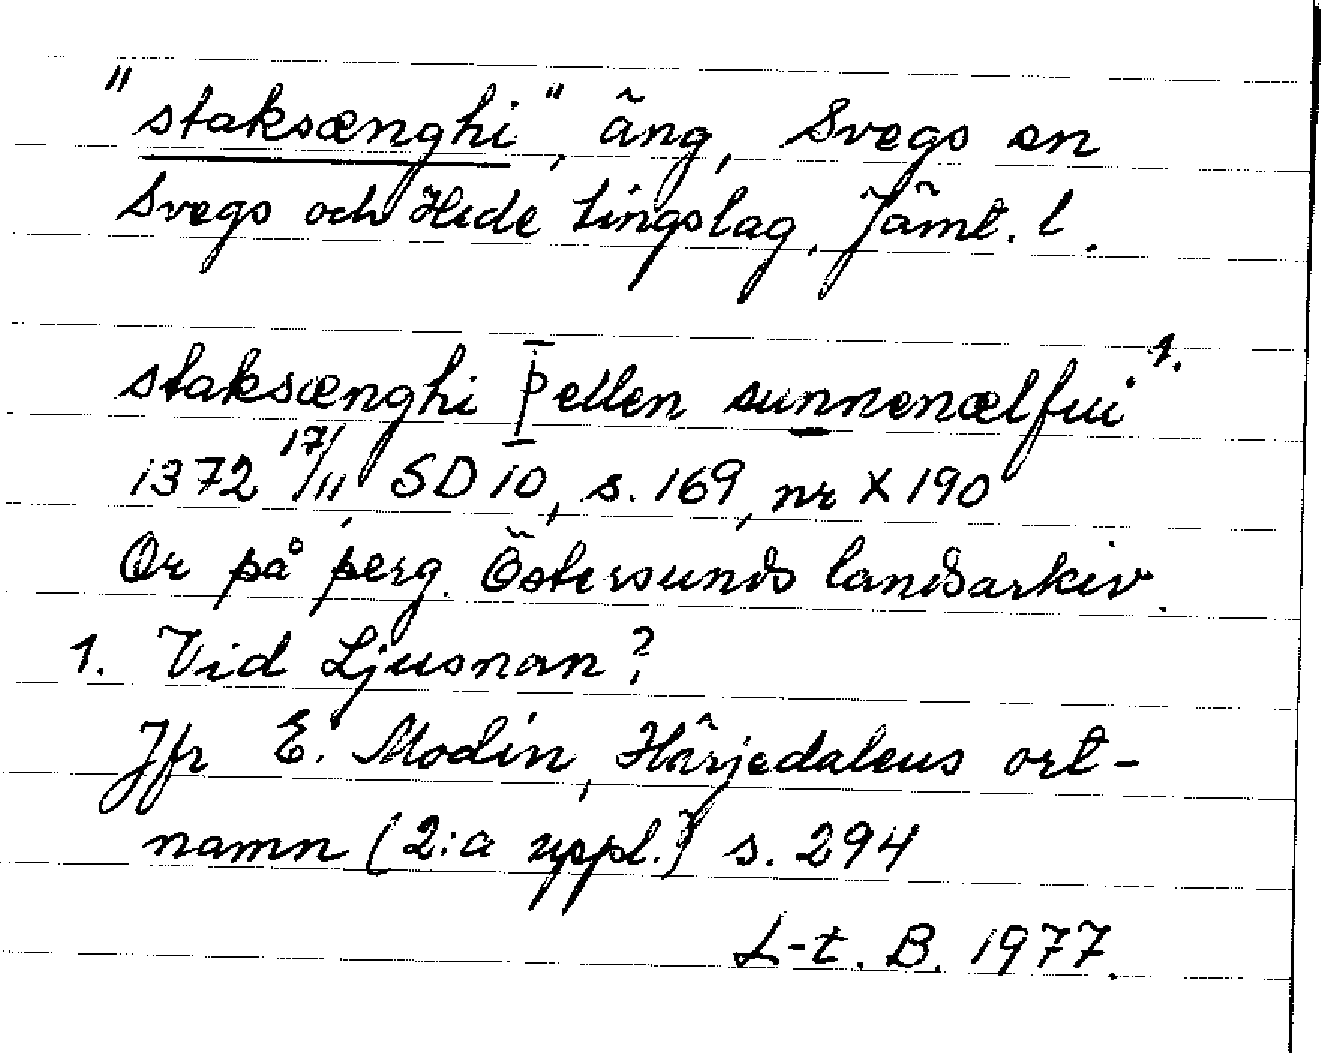 "staksænghi", äng, Svegs sn
Svegs och Hede tingslag, Jämt. l.
staksænghi þellen sunnenælfui 1.
1372 17/11 SD 10, s. 169, nr X 190
Or på perg. Östersunds landsarkiv.
1. Vid Ljusnan?
Jfr E. Modin, Härjedalens ort-
namn (2:a uppl.) s. 294
L-t. B. 1977.